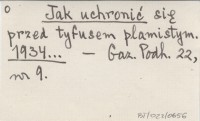 Jak uchronić się
przed tyfusem plamistym.
1934... — Gaz. Podh. 22,
nr 9.